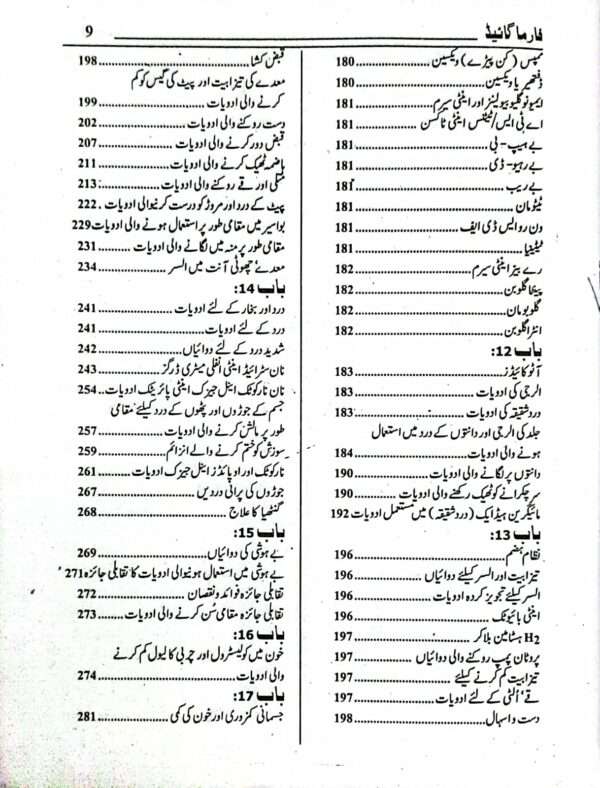 فارما گائیڈ 9
ممپس (کن پیڑے) ویکسین 180
ڈفتھیریا ویکسین 180
ایمیونوگلیوبیولینز اور اینٹی سیرم 181
اے ٹی ایس/ٹیٹنس اینٹی ٹاکسن 181
بے ہیپ - بی 181
بے رہیو - ڈی 181
بے ریب 181
ٹیٹومان 181
ون رو ایس ڈی ایف 181
ٹیٹیبیا 181
رے بیز اینٹی سیرم 182
پینٹا گلوبن 182
گلوبومان 182
انٹرا گلوبن 182
باب 12:
آٹو کائیڈز 183
الرجی کی ادویات 183
درد شقیقہ کی ادویات 183
جلد کی الرجی اور دانتوں کے درد میں استعمال
ہونے والی ادویات 184
دانتوں پر لگانے والی ادویات 190
سر چکرانے کو ٹھیک رکھنے والی ادویات 190
مائیگرین ہیڈ ایک (درد شقیقہ) میں مستعمل ادویات 192
باب 13:
نظام ہضم 196
تیزابیت اور السر کیلئے دوائیاں 196
السر کیلئے تجویز کردہ ادویات 196
اینٹی بائیوٹک 196
H2 ہسٹامین بلاکر 197
پروٹان پمپ روکنے والی دوائیاں 197
تیزابیت کم کرنے کیلئے 197
قے، اُلٹی کے لئے ادویات 197
دست و اسہال 198
قبض کشا 198
معدے کی تیزابیت اور پیٹ کی گیس کو کم
کرنے والی ادویات 199
دست روکنے والی ادویات 202
قبض دور کرنے والی ادویات 207
ہاضمہ ٹھیک کرنے والی ادویات 211
متلی اور قے روکنے والی ادویات 213
پیٹ کے درد اور مروڑ کو درست کرنیوالی ادویات 222
بواسیر میں مقامی طور پر استعمال ہونے والی ادویات 229
مقامی طور پر منہ میں لگانے والی ادویات 231
معدے، چھوٹی آنت میں السر 234
باب 14:
درد اور بخار کے لئے ادویات 241
درد کے لئے ادویات 241
شدید درد کے لئے دوائیاں 242
نان سٹرائیڈ اینٹی انفلی میٹری ڈرگز 243
نان نارکوٹک اینل جیزک اینٹی پائریٹک ادویات 254
جسم کے جوڑوں اور پٹھوں کے درد کیلئے مقامی
طور پر مالش کرنے والی ادویات 257
سوزش کو ختم کرنے والے انزائم 259
نارکوٹک اور اوپائڈز اینل جیزک ادویات 261
جوڑوں کی پرانی دردیں 267
گنٹھیا کا علاج 268
باب 15:
بے ہوشی کی دوائیاں 269
بے ہوشی میں استعمال ہونیوالی ادویات کا تقابلی جائزہ 271
تقابلی جائزہ فوائد و نقصان 272
تقابلی جائزہ مقامی سُن کرنے والی ادویات 273
باب 16:
خون میں کولیسٹرول اور چربی کا لیول کم کرنے
والی ادویات 274
باب 17:
جسمانی کمزوری اور خون کی کمی 281